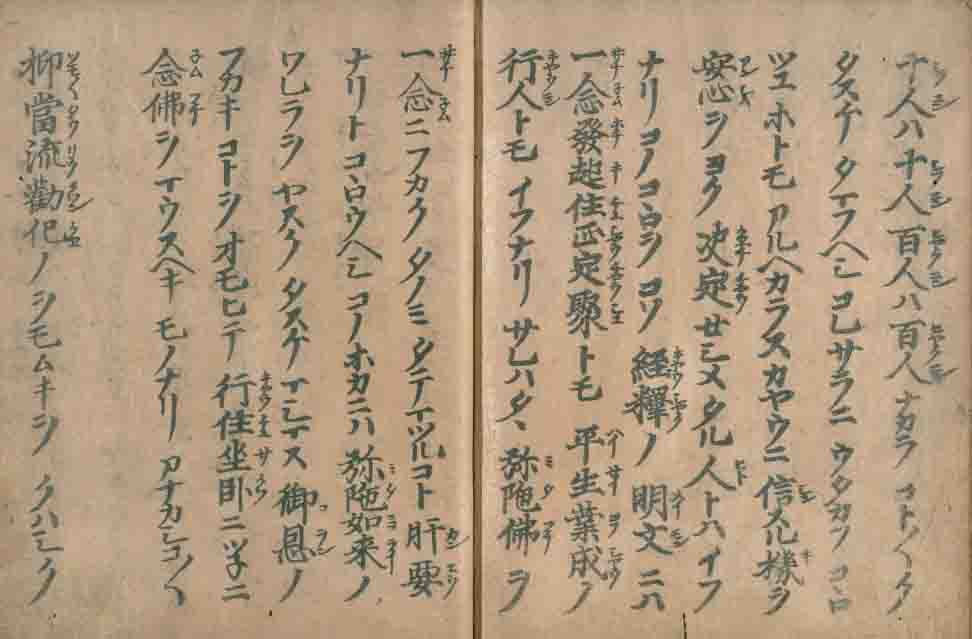 十人ハ十人百人ハ百人ナカラコト〱ク
タスケタマフヘシコレサラニウタカフコヽロ
ツユホトモアルヘカラスカヤウニ信スル機ヲ
安心ヲヨク決定セシメタル人トハイフ
ナリコノコヽロヲコソ経釋ノ明文ニハ
一念發起住正定聚トモ平生業成ノ
行人トモイフナリサレハタヽ弥陁佛ヲ
一念ニフカクタノミタテマツルコト肝要
ナリトコヽロウヘシコノホカニハ弥陁如来ノ
ワレラヲヤスクタスケマシマス御恩ノ
フカキコトヲオモヒテ行住坐臥ニツ子ニ
念佛ヲマウスヘキモノナリアナカシコ〱
抑當流勸化ノヲモムキヲクハシク